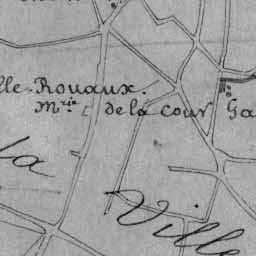 lle-Rouaux.
M.rie de la Cour Ga
la
Ville